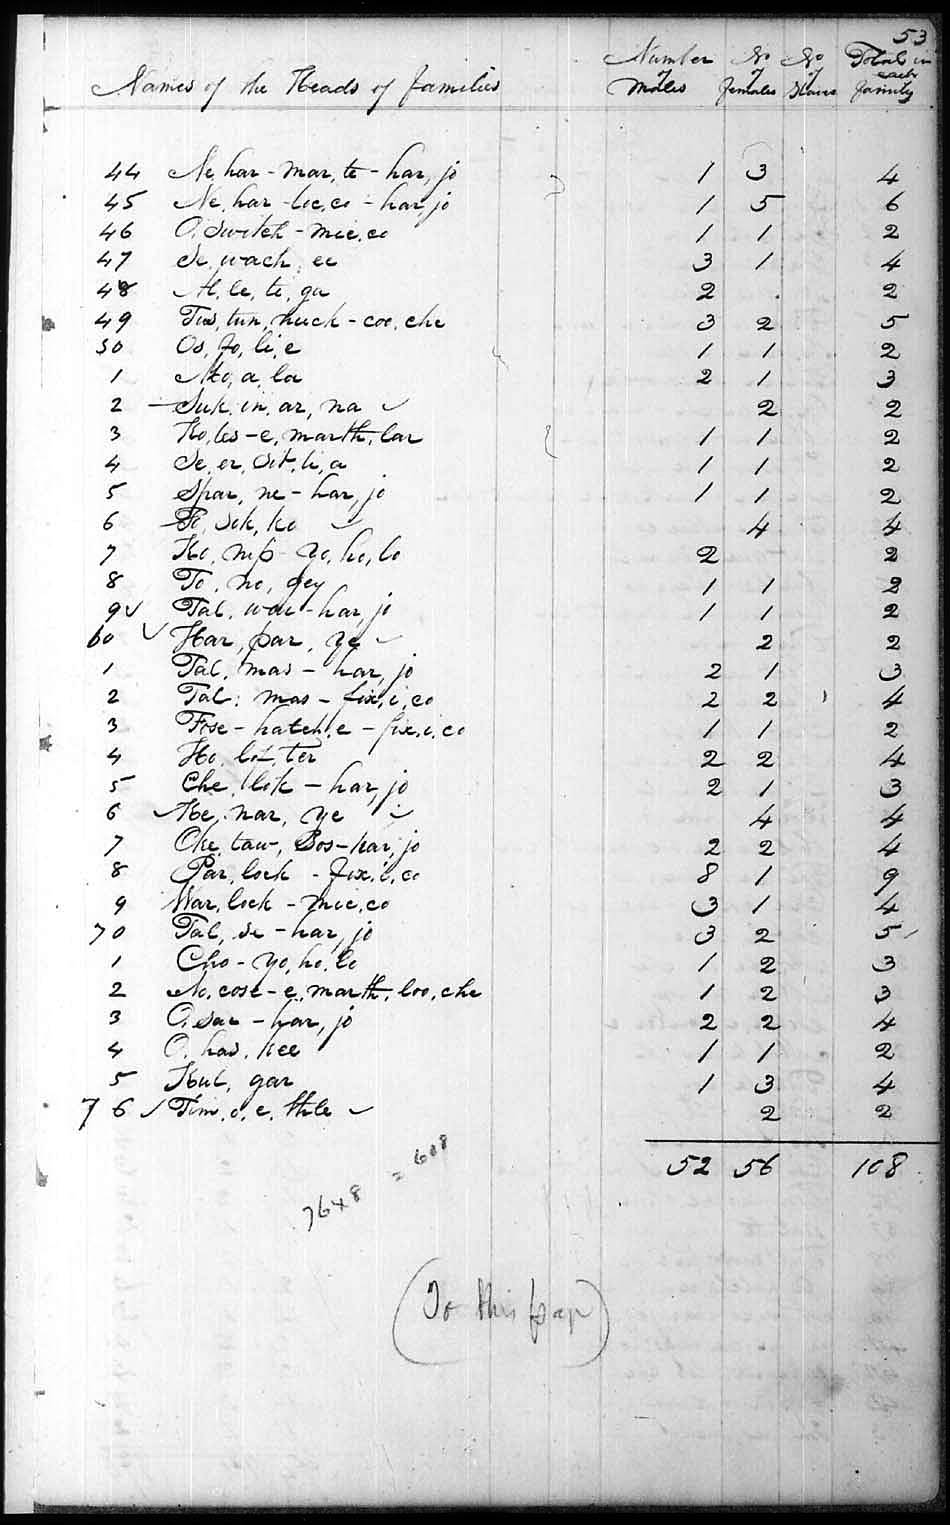 53
Names of the Heads of families Number of Males No of females No of Slaves Total in each family
44 Ne, har - mar, te - har, jo 1 3 4
45 Ne, har - loc, co - har, jo 1 5 6
46 O, Switch - mic, co 1 1 2
47 Se, wach, ee 3 1 4
48 Al, le, te, ga 2 2
49 Tus, tun, nuck - coo, che 3 2 5
50 Os, fo, li, e 1 1 2
1 a, la 2 1 3
2 Suk, in, ar, na 2 2
3 Ho, les - e, marth, lar 1 1 2
4 Se, er, sit, li, a 1 1 2
5 Spar, ne - har, jo 1 1 2
6 sok, ko 4 4
7 Ko, nip - yo, ho, lo 2 2
8 To, no, gey 1 1 2
9 Tal, wau - har, jo 1 1 2
60 Har, par, ye 2 2
1 Tal, mas - har, jo 2 1 3
2 Tal, mas - fix, i, co 2 2 4
3 Fose - hatch, e - fix, i, co 1 1 2
4 Ho, lot, ter 2 2 4
5 Che, lok - har, jo 2 1 3
6 nar, ye 4 4
7 Oke, taw, Sos - har, jo 2 2 4
8 Par, lock - fix, i, co 8 1 9
9 War, lock - mic, co 3 1 4
70 Tal, se - har, jo 3 2 5
1 Cho - yo, ho, lo 1 2 3
2 No, cose - e, marth, loo, che 1 2 3
3 O, sar - har, jo 2 2 4
4 O, has, kee 1 1 2
5 gar 1 3 4
76 Tim, o, e, thle 2 2
52 56 108
7648 = 608
(To this pap)